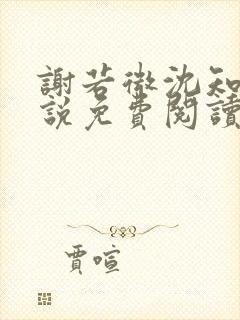 謝若微沈知
說免費閱讀
賈喧